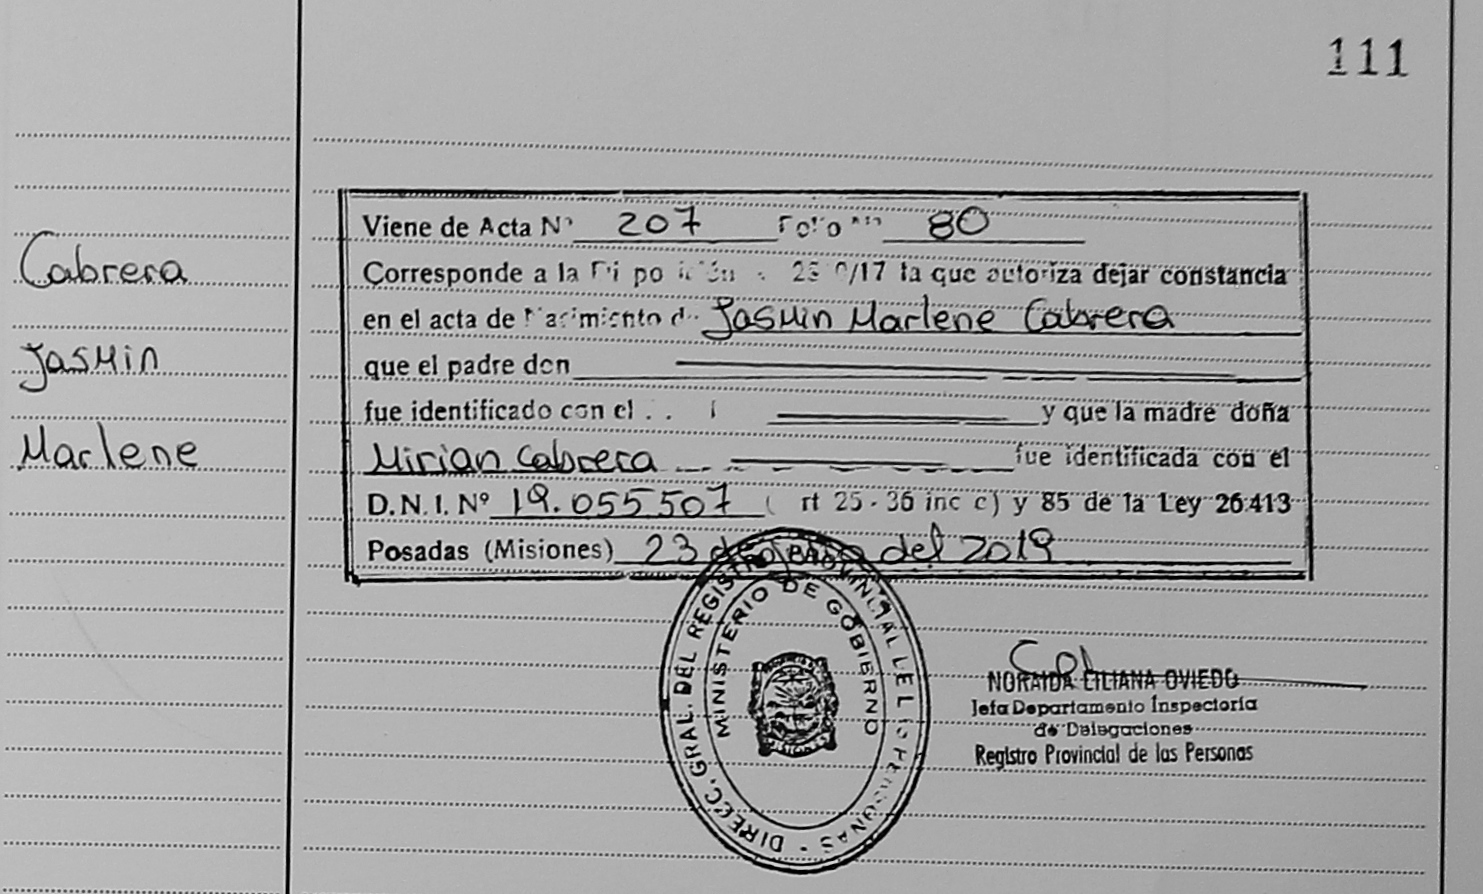 111
Cabrera
Jasmin
Marlene
Viene de Acta Nº 207 Folio Nº 80
Corresponde a la /17 la que autoriza dejar constancia
en el acta de Nacimiento de Jasmin Marlene Cabrera
que el padre don
fue identificado con el y que la madre doña
Mirian Cabrera fue identificada con el
D.N.I. Nº 19.055507 rt 25 - 36 inc c) y 85 de la Ley 26413
Posadas (Misiones) 23 de del 2019
DIRECC. GRAL. DEL REGISTRO PROVINCIAL DE LAS PERSONAS
MINISTERIO DE GOBIERNO
NORAIDA LILIANA OVIEDO
Jefa Departamento Inspectoría
de Delegaciones
Registro Provincial de las Personas